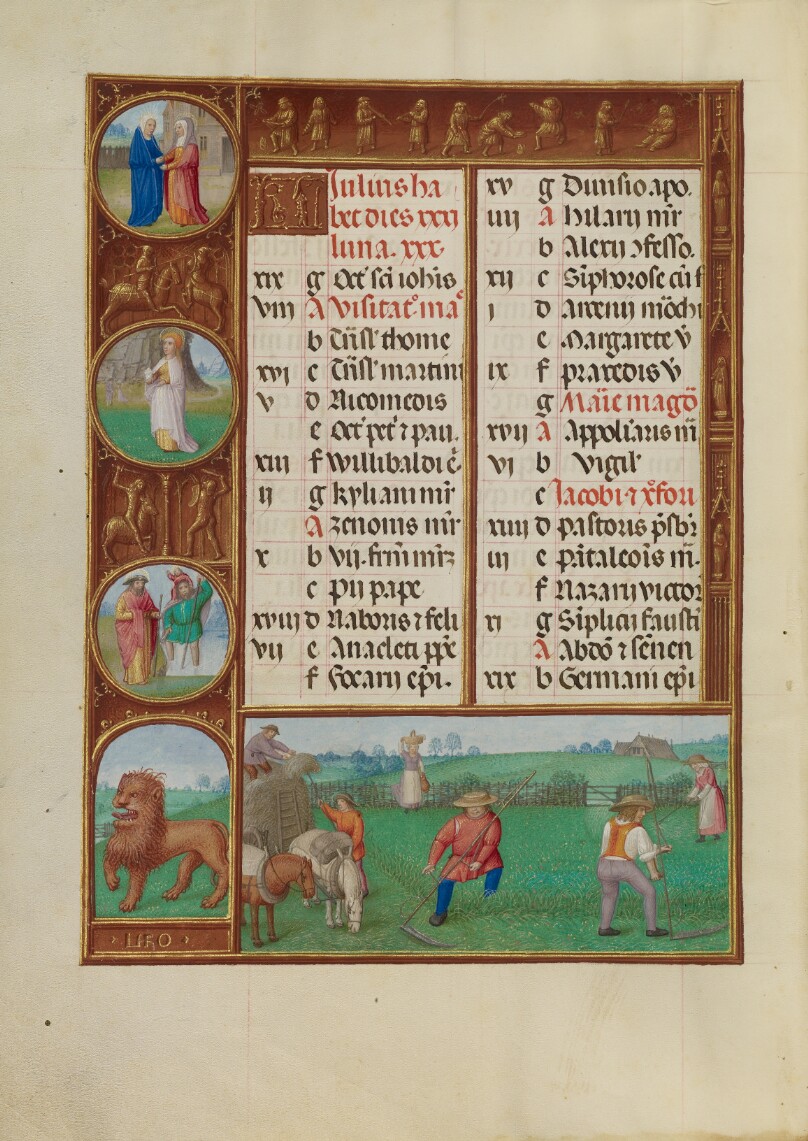 KL Iulius ha
bet dies xxxi
luna. xxx.
xix g Oct sci iohis
viii A Visitat° ma
b Tñsl' thome
xvj c Tñsl' martini
v d Nicomedis
e Oct pet ⁊ pau.
xiii f Willibaldi
ij g kyliani mr
A zenonis mr
x b vii. frm mr
c Pii pape
xviii d Naboris ⁊ feli
vij e Anacleti ppe
f Focarij epi.
xv g Diuisio apo.
iiij A hilarij mr
b Alexij ꝯfesso.
xij c Siphorose cu f
j d Arcenij
e Margarete v
ix f praxedis v
g Maie magd
xvij A Appolinaris m
vj b vigil'
c Iacobi ⁊ xfori
xiiij d pastoris psbr
iij e patalcois m.
f Nazarij victor
xi g Siplicij fausti
A Abdo ⁊ senen
xix b Germani epi
LEO